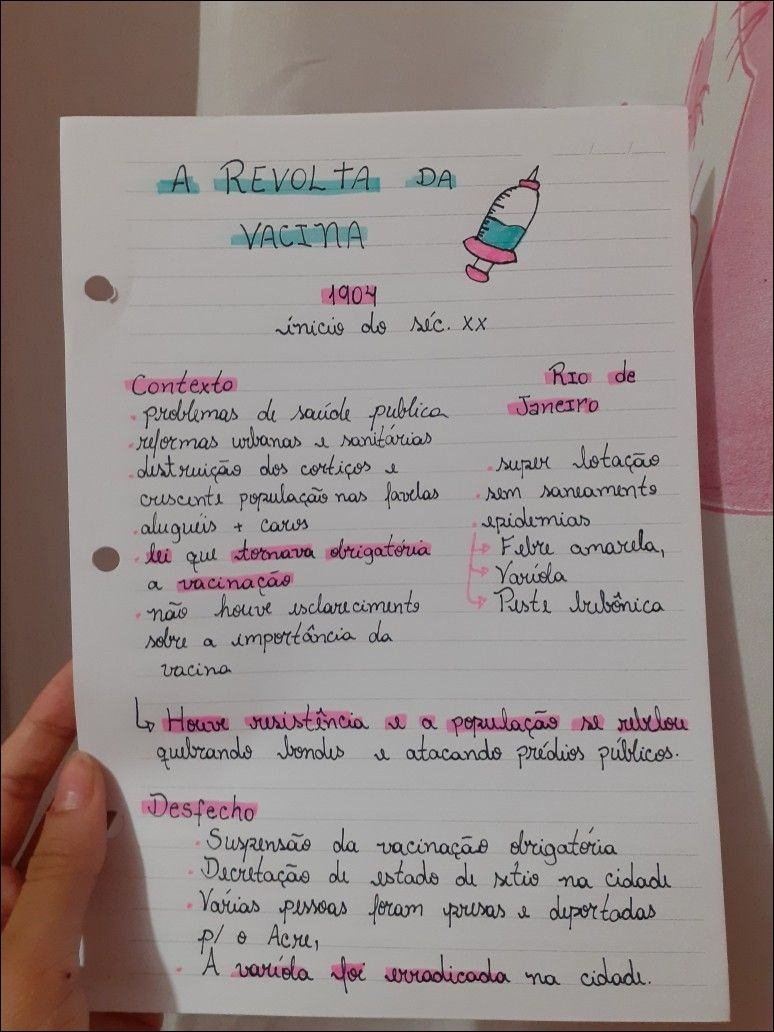 A REVOLTA DA
VACINA
1904
ínicio do séc. XX
Contexto
• problemas de saúde publica
• reformas urbanas e sanitárias
• distruição dos cortiços e
crescente população nas favelas
• aluguéis + caros
• lei que tornava obrigatória
a vacinação
• não houve esclarecimento
sobre a importância da
vacina
Rio de
Janeiro
• super lotação
• sem saneamento
• epidemias
→ Febre amarela,
→ Varíola
→ Peste bubônica
↳ Houve resistência e a população se rebelou
quebrando bondes e atacando prédios públicos.
Desfecho
• Suspensão da vacinação obrigatória
• Decretação de estado de sítio na cidade
• Várias pessoas foram presas e deportadas
p/ o Acre,
• A varíola foi erradicada na cidade.